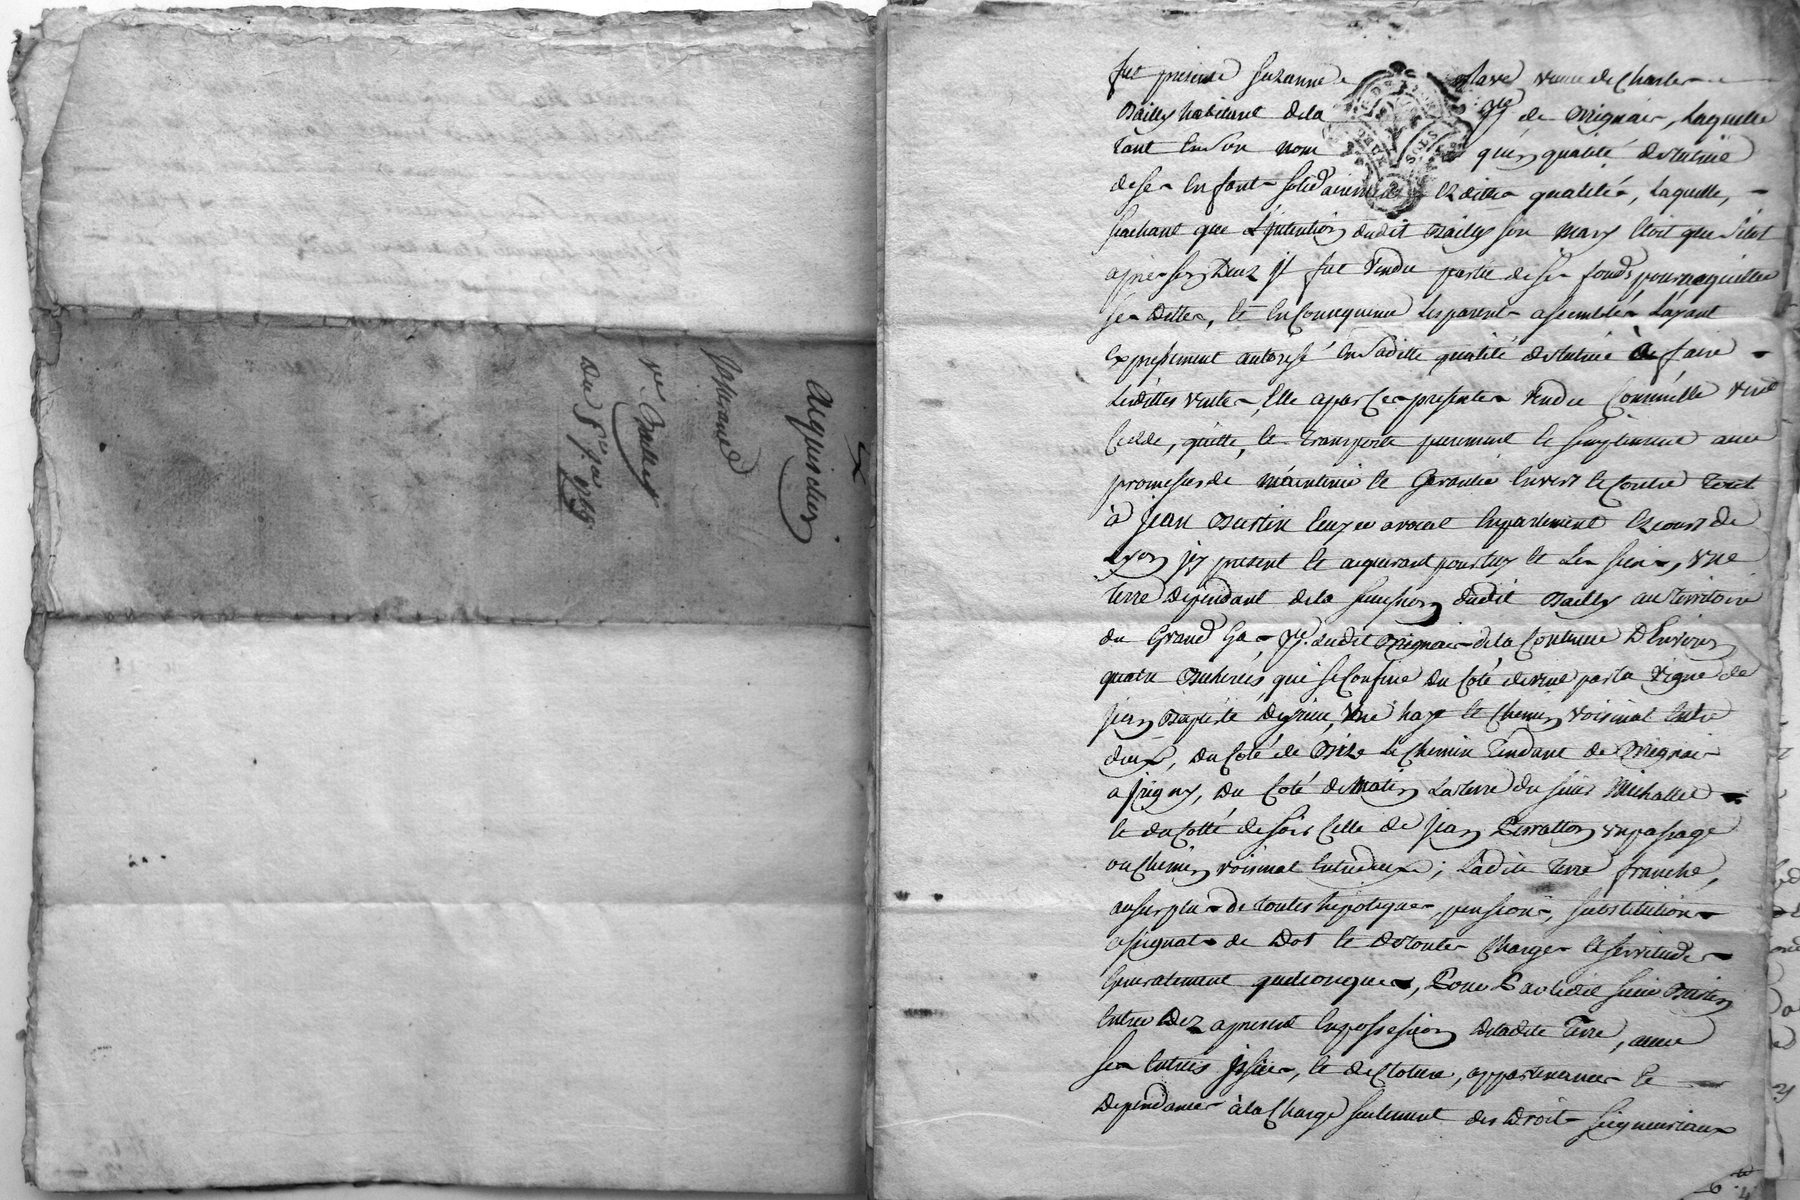 acquisition
ve Bailly
du 8e
fut presente Suzanne veuve de Charles
Bailly habitant de la psse de Brignais, Laquelle
tant En Son nom qu'En qualité de tutrice
de ses Enfants solidairement Esdittes qualités, Laquelle,
sachant que L'jntention dudit Bailly son mary Etoit que s'ilet
apres son Deuz jl fut Vendu partie de ses fonds pour acquitter
ses Dettes, Et En Consequence Les parents assemblés L'ayant
Expressement autorisé En Sa ditte qualité de tutrice de faire
Lesdittes ventes, Elle a par Ces presentes Vendu Comme Elle Vend
Cedde, quitte, Et transporte purement Et simplement avec
promesse de maintenir Et Garantir Envers Et Contre tout
à jean Burtin Ecuyer avocat En parlement Et Cours de
Lyon jcy present Et acquerant pour Luy Et Les siens, une
terre Dependant de la succession dudit Bailly au territoire
du Grand Ga, psse dudit Brignais de la Contenue D'Environ
quatre Bicherées, qui se Confine du Coté de vent par la Vigne de
jean Baptiste une haye Et Chemin Voisinal Entre
deux, du Coté de Bize Le Chemin tendant de Brignais
a jrigny, du Coté de Matin La terre du sieur Michallet
Et du Cotté de soir Celle de jean Perratton un passage
ou Chemin voisinal Entre deux ; Ladite terre franche,
au surplus de toutes hipoteques, pensions, substitutions
assignats de Dot Et de toutes Charges Et servitudes
Generalement quelconques, Pour Par Ledit sieur Burtin
Entrer Dez a present En possession de Ladite terre, avec
ses Entrées jssües, Et de Cloture, appartenances Et
Dependances à la Charge seulement des Droits seigneuriaux